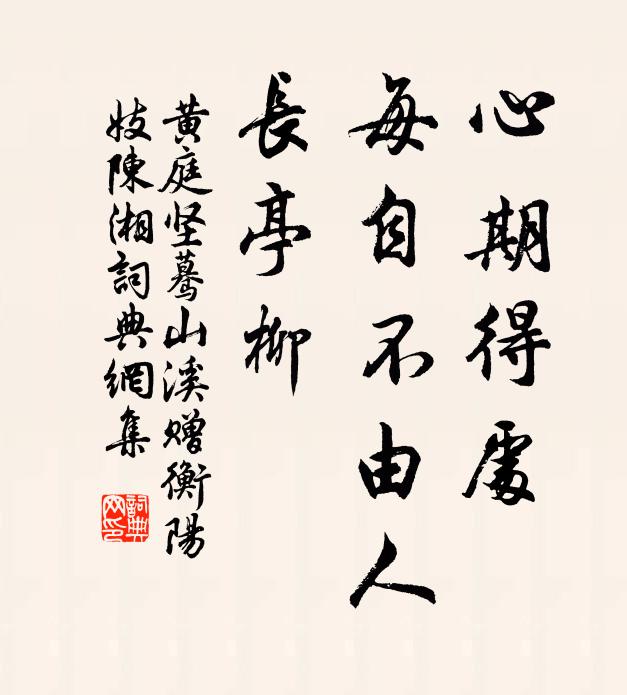 心期得處
每自不由人
長亭柳
黄庭坚驀山溪贈衡陽
妓陳湘詞典網集
詞典網印